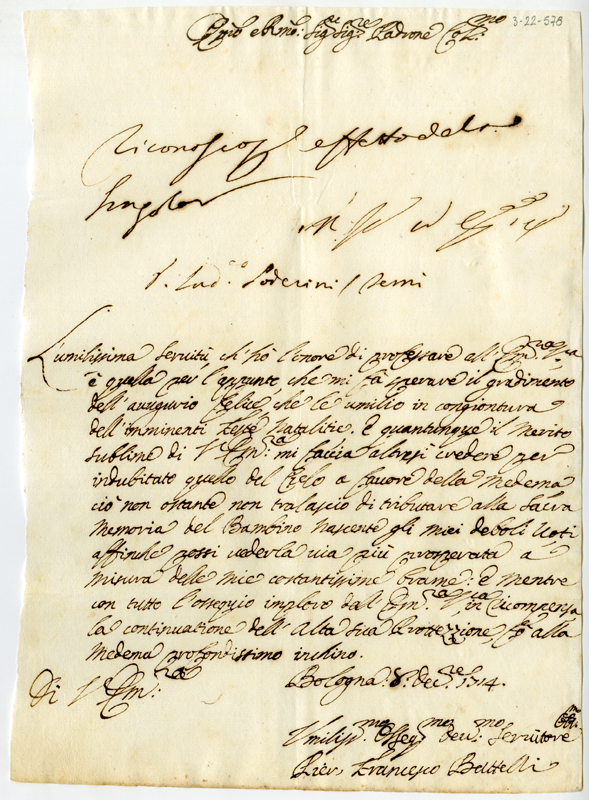 3-22-578
Em̃o e Rmo: Sig.re Sig.re Padrone Col.mo
Riconosco effetto dela
singolar
P. Lud.co Soderini / Terni
L'umilissima servitù ch'hò l'onore di professare all'Em.za V.ra
è quella per l'appunto che mi fà sperare il gradimento
dell'augurio felice che le umilio in congiontura
dell'imminenti feste Natalitie. E quantunque il merito
sublime di V. Em.za mi faccia altresì credere per
indubitato quello del Cielo a favore della medema
ciò non ostante non tralascio di tributare alla sacra
memoria del Bambino nascente gli miei deboli voti
affinche possi vederla via più prosperata à
misura delle mie costantissime brame: e mentre
con tutto l'osseqio imploro dall'Em.za V.ra in ricompensa
la continuatione dell'Alta sua Protezzione, fò alla
medema profondissimo inchino.
Di V. Em.za
Bologna 8. Dec.re 1714.
Umiliss.mo Osseq.mo Dev.mo Servitore
Pier Francesco Belttelli